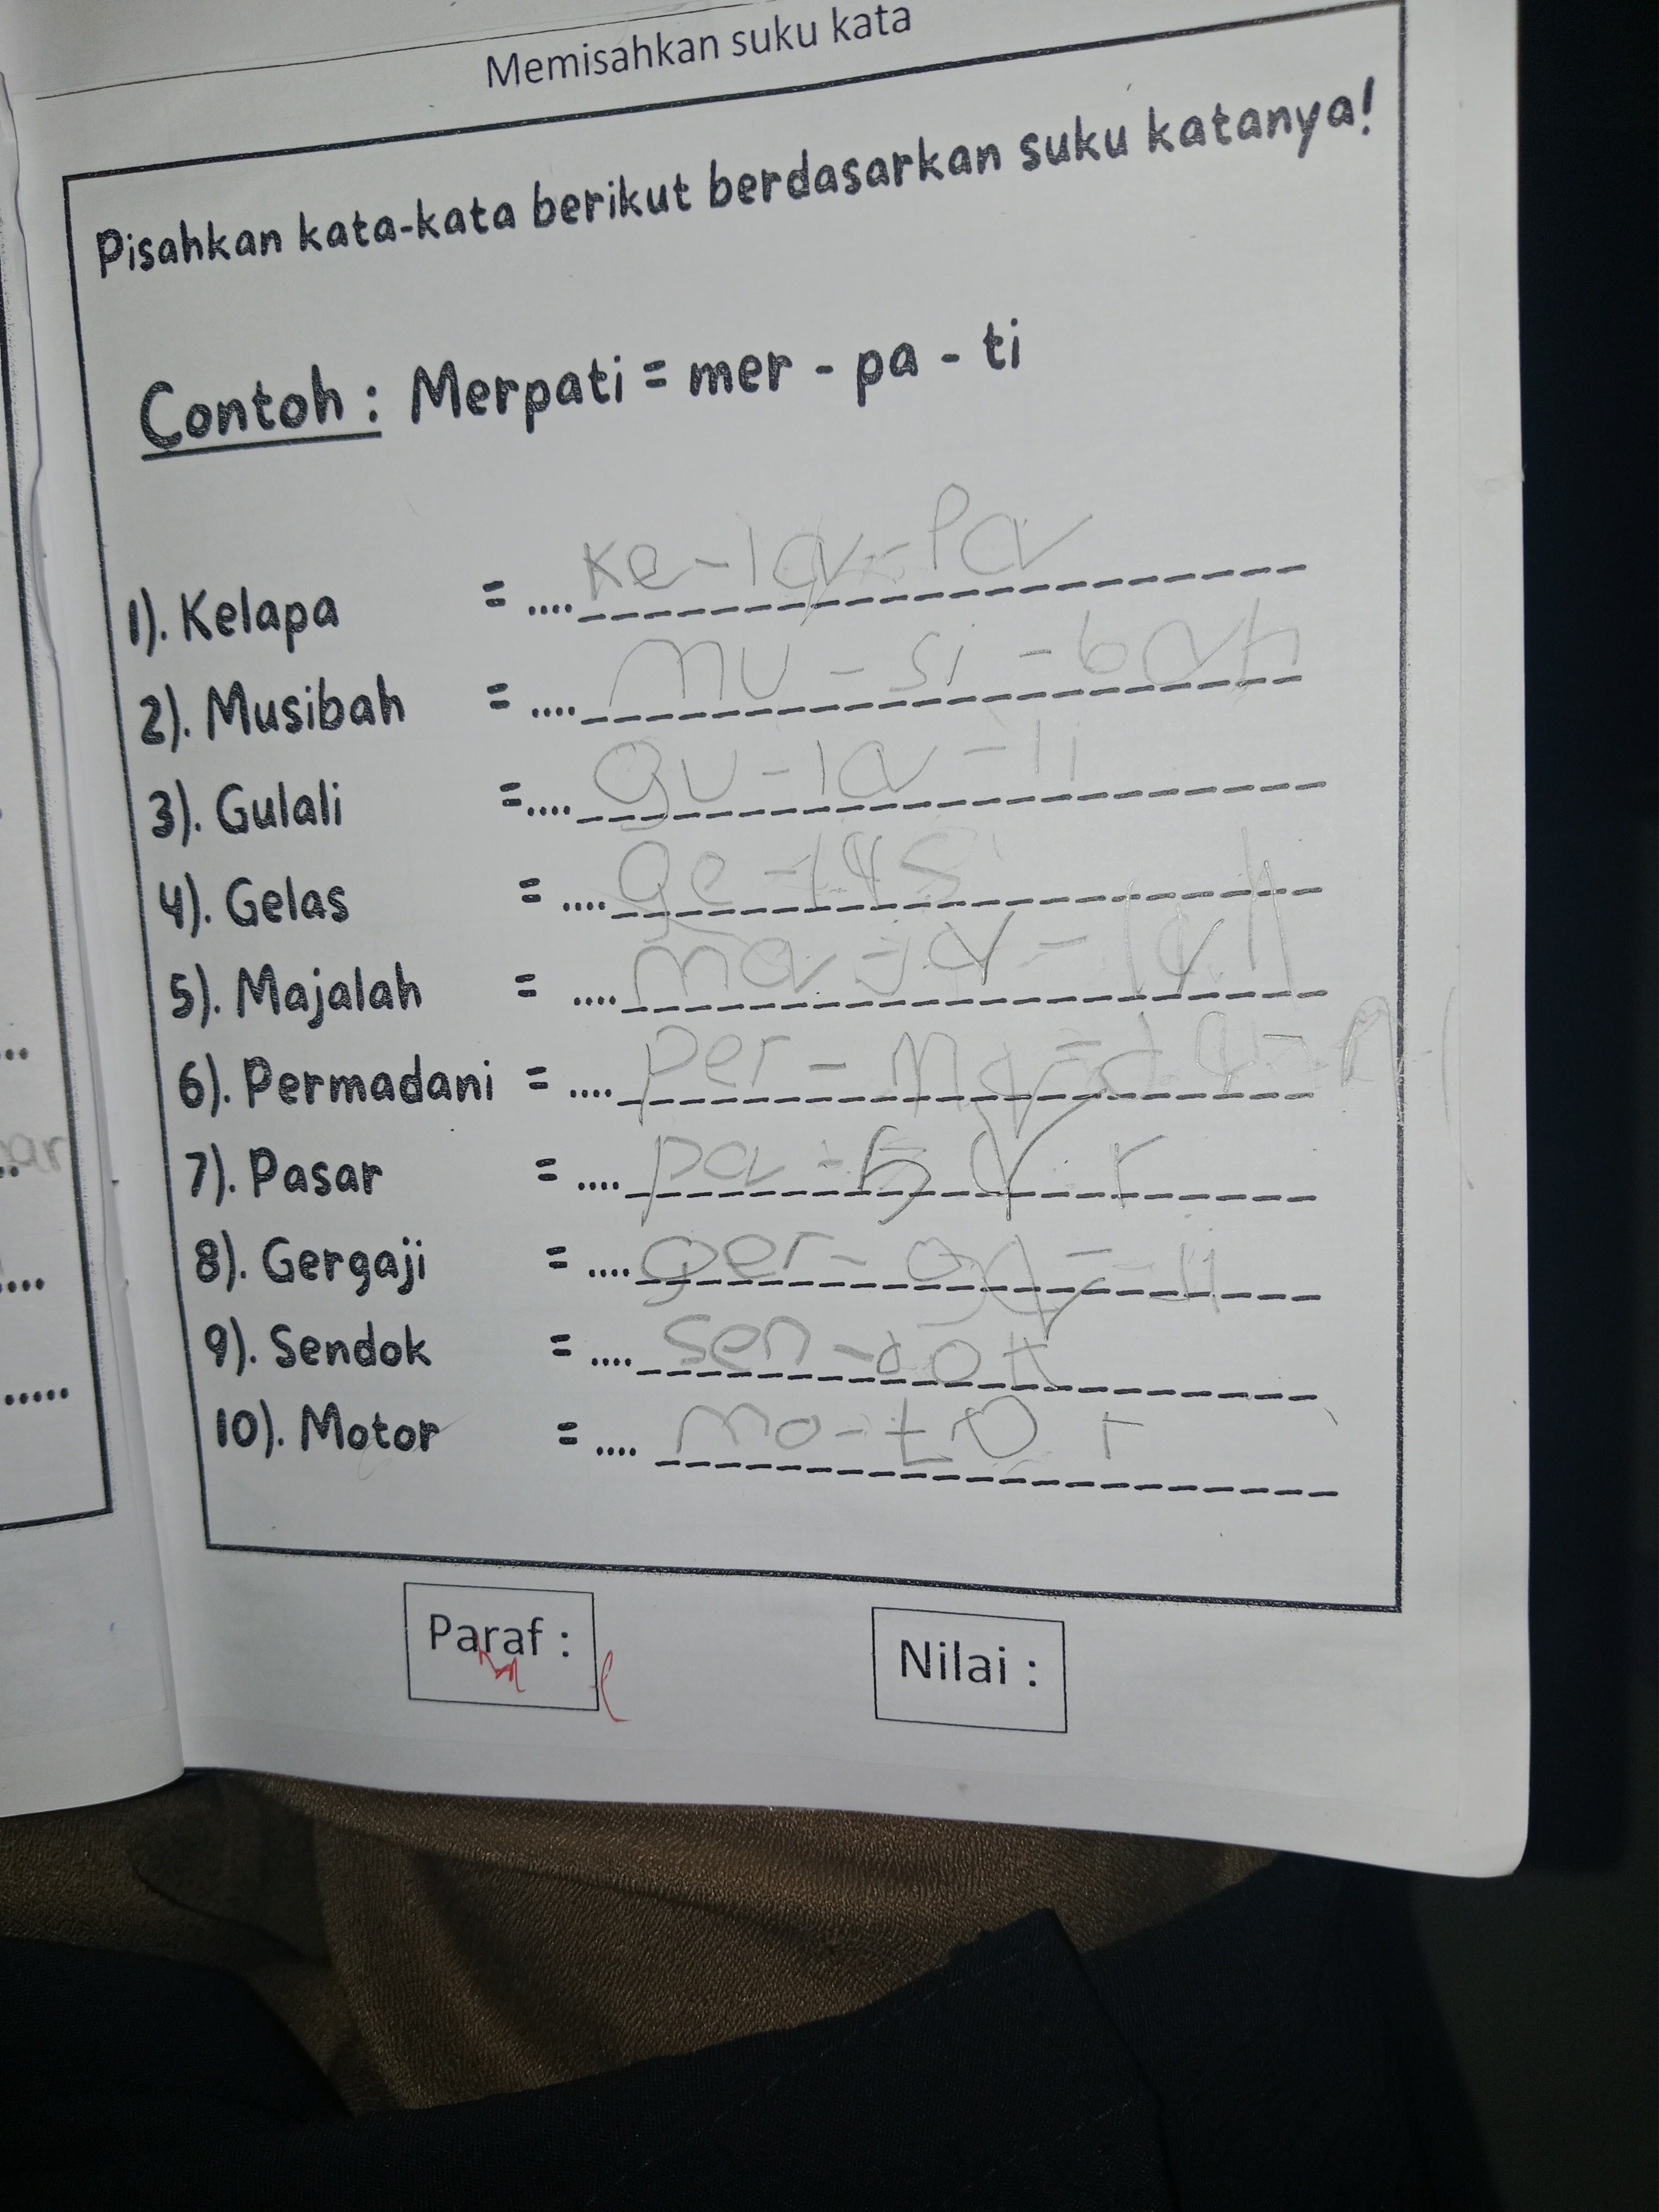 Memisahkan suku kata
Pisahkan kata-kata berikut berdasarkan suku katanya!
Contoh : Merpati = mer - pa - ti
1). Kelapa = .... ke-la-Pa
2). Musibah = .... mu - si - bah
3). Gulali = .... gu-la-li
4). Gelas = .... ge-las
5). Majalah = .... ma-ja-lah
6). Permadani = .... per-ma-da-ni
7). Pasar = .... pa-sar
8). Gergaji = .... ger-ga-ji
9). Sendok = .... sen-dok
10). Motor = .... mo-tor
Paraf :
Nilai :
ar